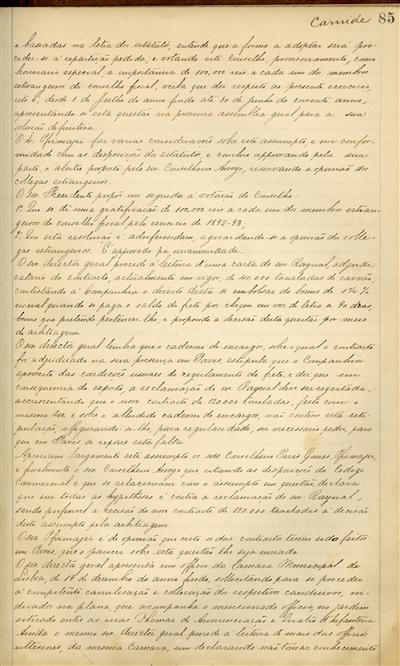 Carnide 85
e baseadas na letra dos estatutos, entende que a forma a adoptar será pro-
ceder-se á repartição pedida, e votando este Conselho, provisoriamente, como
honorario especial, a importancia de 100,000 reis a cada um dos membros
estrangeiros do conselho fiscal, verba que diz respeito ao presente exercicio,
isto é, desde 1 de julho do anno findo até 30 de junho do corrente anno,
apresentando-se esta questão na proxima assembléa geral para a sua
solução definitiva.
O Sr. faz varias considerações sobre este assumpto, e em confor-
midade com as disposições dos estatutos, e conclue approvando pela sua
parte, o alvitre proposto pelo sr. Conselheiro Arroyo, reservando a opinião dos
collegas estrangeiros.
O Snr. Presidente propõe em seguida á votação do Conselho
1º Que se dê uma gratificação de 100,000 reis a cada um dos membros estran-
geiros do conselho fiscal pelo exercicio de 1892-93,
2º Que esta resolução é ad referendum, aguardando-se a opinião dos colle-
gas estrangeiros. É approvado por unanimidade.
O snr. director geral procede á leitura d'uma carta do snr. Raynal, adjudi-
catario do contracto, actualmente em vigor, de 40.000 toneladas de carvão,
contestando á Companhia o direito d'esta se embolsar do bonus de 1 ½ %
usual quando se paga o saldo do frete por cheque em vez de letra a 90 dias,
bonus que pretende pertencer-lhe, e propondo a decisão d'esta questão por meio
de arbitragem.
O snr. director geral lembra que o caderno de encargos, sobre o qual o contracto
foi adjudicado na sua presença em Paris, estipula que a Companhia
aproveita das condições usuaes do regulamento do frete, e diz que em
consequencia do exposto, a reclamação do sr. Raynal deve ser regeitada,
accrescentando que o novo contracto de 120000 toneladas, feito com o
mesmo snr. e sobre o alludido caderno de encargos, não contém esta esti-
pulação, afigurando-se-lhe para regularidade, ser necessario pedir, para
que em Paris se repare esta falta.
Apreciam largamente este assumpto os snrs Conselheiros Peres Gomes,
e finalmente o snr. Conselheiro Arroyo que citando as disposições do Codigo
Commercial e que se relacionam com o assumpto em questão, declara
que em todas as hypotheses é contra a reclamação do snr. Raynal,
sendo porfim a decisão do novo contracto de 120.000 toneladas a decisão
d'este assumpto pela arbitragem.
O snr. é de opinião que visto os dois contractos terem sido feitos
em Paris, que o parecer sobre esta questão lhe seja enviado.
O snr. director geral apresenta um officio da Camara Municipal de
Lisboa, de 19 de dezembro do anno findo, solicitando para se proceder
á competente canalisação e collocação dos respectivos candieiros, in-
dicados na planta, que acompanha o mencionado officio, no jardim
situado entre as ruas Thomaz da Annunciação e Quatro de Infanteria
Ainda o mesmo snr. director geral procede á leitura de mais dois officios
ulteriores, da mesma Camara, um declarando não tomar conhecimento